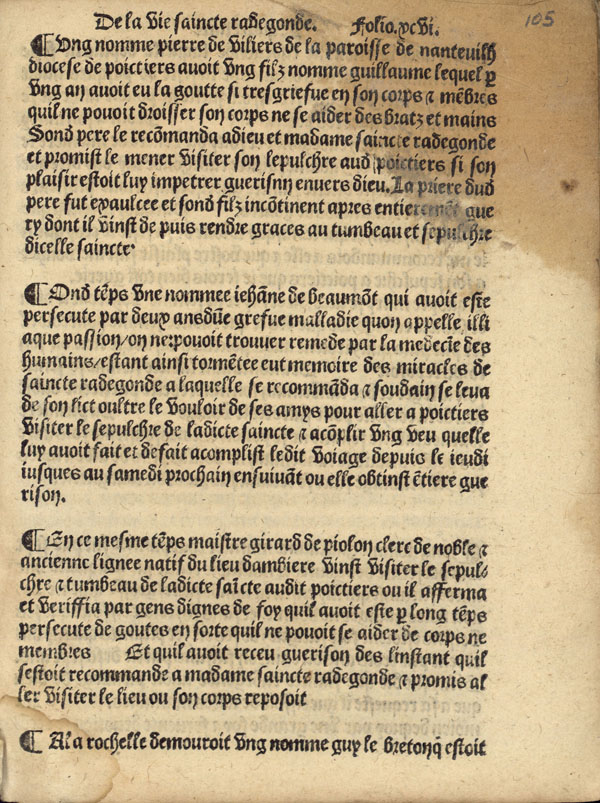 De la vie saincte radegonde. Folio.xcvi.
105
¶ Ung nomme pierre de viliers de la paroisse de nanteuilh
diocese de poictiers avoit ung filz nomme guillaume lequel p̲
ung an avoit eu la goutte si tresgriefue en son corps ⁊ mẽbres
quil ne pouoit droisser son corps ne se aider des bratz et mains
Sond pere le recõmanda adieu et madame saincte radegonde
et promist le mener visiter son sepulchre aud poictiers si son
plaisir estoit luy impetrer guerisnn enuers dieu. La priere dud
pere fut exaulcee et sond filz incõtinent apres entierement gue
ry dont il vinst de puis rendre graces au tumbeau et sepulchre
dicelle saincte·
¶ Ond tẽps une nommee iehãne de beaumõt qui avoit este
persecute par deux ans dũe grefue malladie quon appelle illi
aque passion/on ner pouoit trouuer remede par la medecĩe des
humains/estant ainsi tormẽtee eut memoire des miracles de
saincte radegonde a laquelle se recommãda ⁊ soudain se leva
de son lict oultre le vouloir de ses amys pour aller a poictiers
visiter le sepulchre de ladicte saincte ⁊ acõplir ung veu quelle
luy avoit fait et de fait acomplist ledit voiage depuis le ieudi
iusques au samedi prochain ensuivãt ou elle obtinst ẽtiere gue
rison.
¶ En ce mesme tẽps maistre girard de piolon clerc de noble ⁊
ancienne lignee natif du lieu dambiere vinst visiter le sepul-
chre ⁊ tumbeau de ladicte saĩcte audit poictiers ou il afferma
et veriffia par gens dignes de foy quil avoit este p̲ long tẽps
persecute de goutes en sorte quil ne pouoit se aider de corps ne
membres Et quil avoit receu guerison des linstant quil
sestoit recommande a madame saincte radegonde ⁊ promis al
ler visiter le lieu ou son corps reposoit
¶ A la rochelle demouroit ung nomme guy le breton q̃ estoit